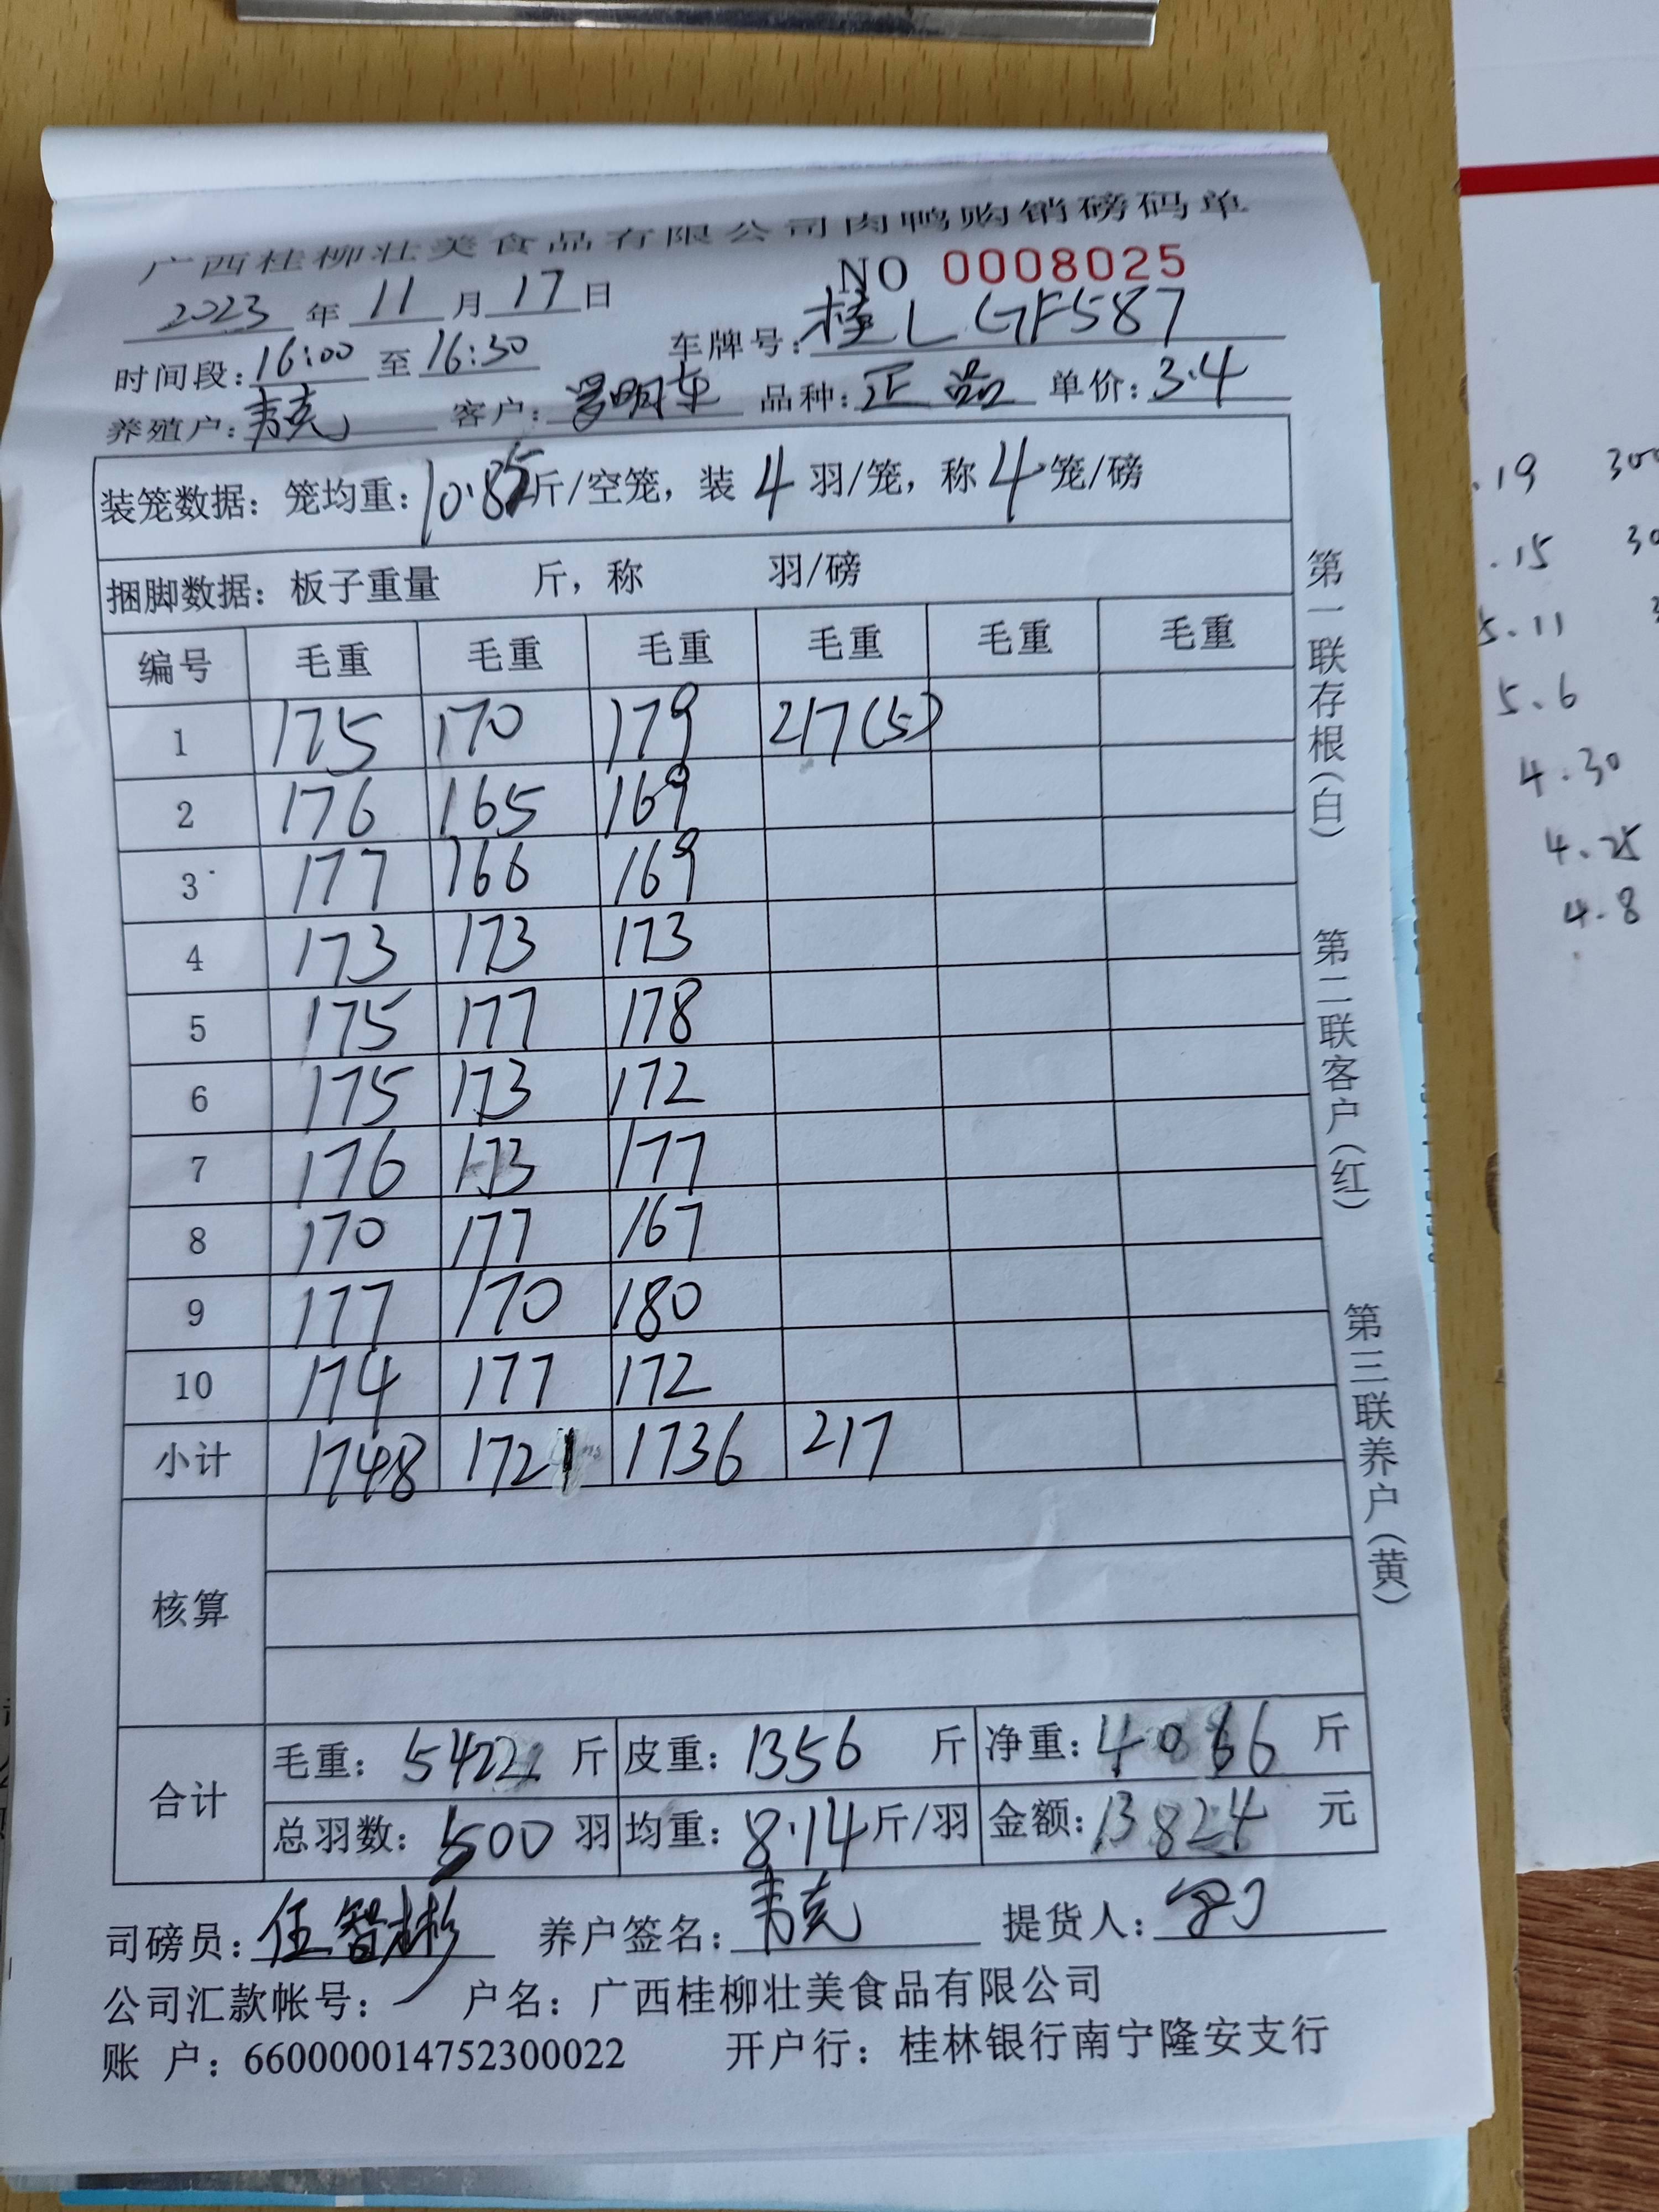 广西桂柳壮美食品有限公司肉鸭购销磅码单
NO 0008025
2023 年 11 月 17 日
时间段: 16:00 至 16:30 车牌号: 桂L GF587
养殖户: 韦克 客户: 明东 品种: 正品 单价: 3.4
装笼数据: 笼均重: 10.85 斤/空笼, 装 4 羽/笼, 称 4 笼/磅
捆脚数据: 板子重量 斤, 称 羽/磅
编号 毛重 毛重 毛重 毛重 毛重 毛重
1 175 170 179 217(5)
2 176 165 169
3 177 166 169
4 173 173 173
5 175 177 178
6 175 173 172
7 176 173 177
8 170 177 167
9 177 170 180
10 174 177 172
小计 1748 1721 1736 217
核算
合计 毛重: 5422 斤 皮重: 1356 斤 净重: 4066 斤
总羽数: 500 羽 均重: 8.14 斤/羽 金额: 13824 元
司磅员: 伍智彬 养户签名: 韦克 提货人:
公司汇款帐号: 户名: 广西桂柳壮美食品有限公司
账 户: 660000014752300022 开户行: 桂林银行南宁隆安支行
第一联存根(白) 第二联客户(红) 第三联养户(黄)
.19 300
.15 30
5.11
5.6
4.30
4.25
4.8